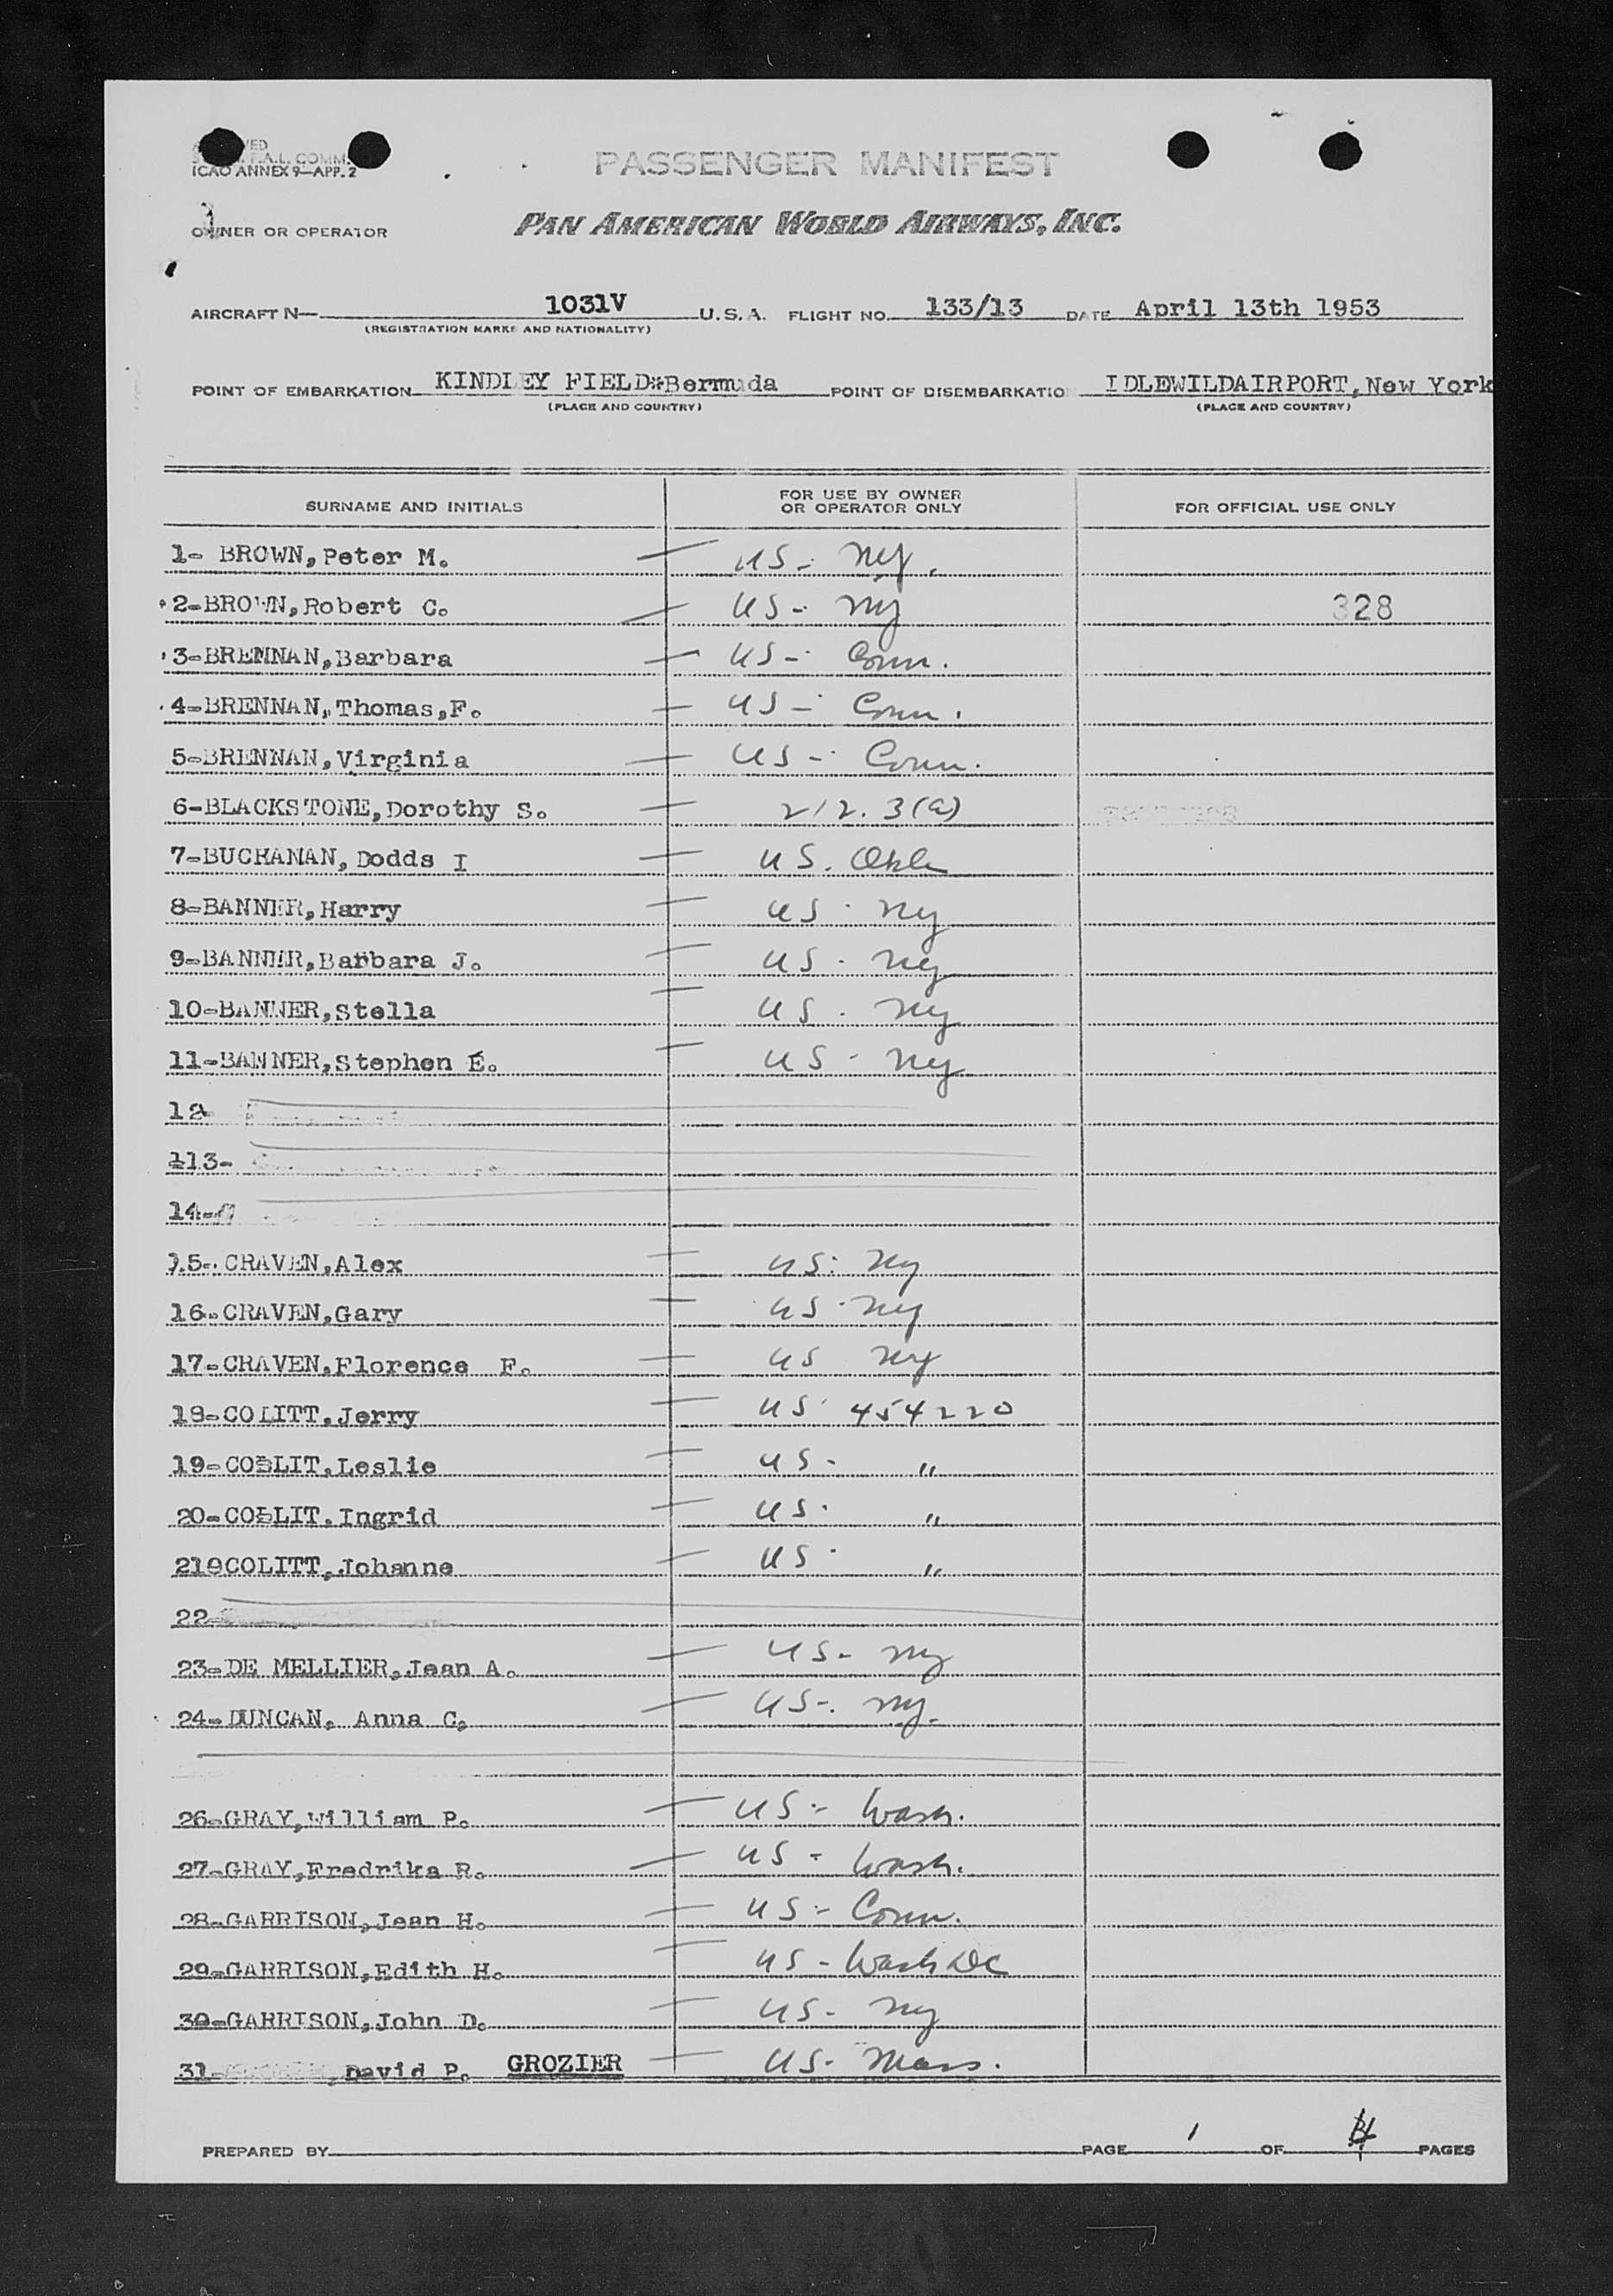 ICAO ANNEX 9—APP. 2
PASSENGER MANIFEST
OWNER OR OPERATOR
PAN AMERICAN WORLD AIRWAYS, INC.
AIRCRAFT N— 1031V U.S.A. FLIGHT NO. 133/13 DATE April 13th 1953
(REGISTRATION MARKS AND NATIONALITY)
POINT OF EMBARKATION KINDLEY FIELD*Bermuda POINT OF DISEMBARKATION IDLEWILDAIRPORT, New York
(PLACE AND COUNTRY) (PLACE AND COUNTRY)
SURNAME AND INITIALS FOR USE BY OWNER OR OPERATOR ONLY FOR OFFICIAL USE ONLY
1- BROWN, Peter M. — US - NY.
2-BROWN, Robert C. — US - NY 328
3-BRENNAN, Barbara — US - Conn.
4-BRENNAN, Thomas, F. — US - Conn.
5-BRENNAN, Virginia — US - Conn.
6-BLACKSTONE, Dorothy S. — 212.3(a)
7-BUCHANAN, Dodds I — US. Okla
8-BANNER, Harry — US - NY
9-BANNER, Barbara J. — US - NY
10-BANNER, Stella — US - NY
11-BANNER, Stephen E. — US - NY
12-
113-
14-
15- CRAVEN, Alex — US - NY
16- CRAVEN, Gary — US - NY
17-CRAVEN, Florence F. — US NY
18-COLITT, Jerry — US 454220
19-COLLIT, Leslie — US - "
20-COLLIT, Ingrid — US - "
219COLITT, Johanne — US - "
22-
23-DE MELLIER, Jean A. — US - NY
24-DUNCAN, Anna C. — US - NY.
26-GRAY, William P. — US - Wash.
27-GRAY, Fredrika R. — US - Wash.
28-GARRISON, Jean H. — US - Conn.
29-GARRISON, Edith H. — US - Wash DC
30-GARRISON, John D. — US - NY
31- , David P. GROZIER — US - Mass.
PREPARED BY PAGE 1 OF 4 PAGES